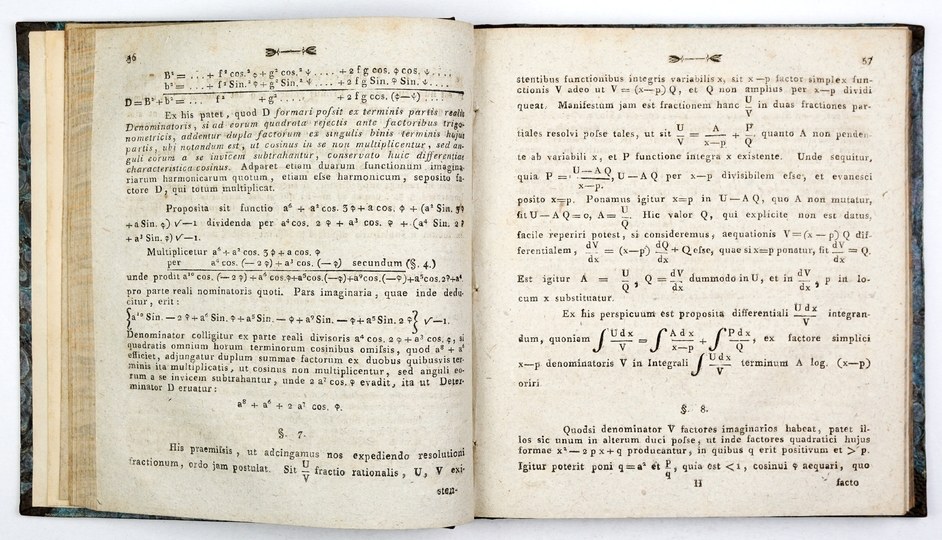 56
B² = ... + f² cos.² φ + g² cos.² ψ .... + 2 f g cos. φ cos. ψ ....
b² = ... + f² Sin.² φ + g² Sin.² ψ .... + 2 f g Sin. φ Sin. ψ ....
D = B² + b² = ... f² + g² .... + 2 f g cos. (φ—ψ) ....
Ex his patet, quod D formari poſsit ex terminis partis realis
Denominatoris, si ad eorum quadrata rejectis ante factoribus trigo-
nometricis, addentur dupla factorum ex singulis binis terminis hujus
partis, ubi notandum est, ut cosinus in se non multiplicentur, sed an-
guli eorum a se invicem subtrahantur, conservato huic differentiae
characteristica cosinus. Adparet etiam duarum functionum imagina-
riarum harmonicarum quotum, etiam eſse harmonicum, seposito fa-
ctore D, qui totum multiplicat.
Proposita sit functio a⁶ + a² cos. 3 φ + a cos. φ + (a² Sin. 3φ
+ a Sin. φ) √—1 dividenda per a⁴ cos. 2 φ + a³ cos. φ + (a⁴ Sin. 2 φ
+ a³ Sin. φ) √—1.
Multiplicetur a⁶ + a² cos. 3 φ + a cos. φ
per a⁴ cos. (— 2 φ) + a³ cos. (—φ) secundum (§. 4.)
unde prodit a¹⁰ cos. (— 2 φ) + a⁶ cos. φ + a⁵ cos. (—φ) + a⁹ cos. (—φ) + a⁵ cos. 2φ + a⁴
pro parte reali nominatoris quoti. Pars imaginaria, quae inde dedu-
citur, erit:
{a¹⁰ Sin. — 2 φ + a⁶ Sin. φ + a⁵ Sin. — φ + a⁹ Sin. — φ + a⁵ Sin. 2 φ} √—1.
Denominator colligitur ex parte reali divisoris a⁴ cos. 2 φ + a³ cos. φ, si
quadratis omnium horum terminorum cosinibus omiſsis, quod a⁸ + a⁶
efficiet, adjungatur duplum summae factorum ex duobus quibusvis ter-
minis ita multiplicatis, ut cosinus non multiplicentur, sed anguli eo-
rum a se invicem subtrahantur, unde 2 a⁷ cos. φ evadit, ita ut Deter-
minator D eruatur:
a⁸ + a⁶ + 2 a⁷ cos. φ.
§. 7.
His praemiſsis, ut adcingamus nos expediendo resolutioni
fractionum, ordo jam postulat. Sit U/V fractio rationalis, U, V exi-
sten-
57
stentibus functionibus integris variabilis x, sit x—p factor simplex fun-
ctionis V adeo ut V = (x—p) Q, et Q non amplius per x—p dividi
queat. Manifestum jam est fractionem hanc U/V in duas fractiones par-
tiales resolvi poſse tales, ut sit U/V = A/x—p + P/Q, quanto A non penden-
te ab variabili x, et P functione integra x existente. Unde sequitur,
quia P = U—AQ/x—p, U—A Q per x—p divisibilem eſse, et evanesci
posito x=p. Ponamus igitur x=p in U—A Q, quo A non mutatur,
fit U—A Q=0, A=U/Q. Hic valor Q, qui explicite non est datus,
facile reperiri potest, si consideremus, aequationis V=(x—p) Q dif-
ferentialem, dV/dx = (x—p) dQ/dx + Q eſse, quae si x=p ponatur, fit dV/dx = Q.
Est igitur A = U/Q, Q = dV/dx dummodo in U, et in dV/dx, p in lo-
cum x substituatur.
Ex his perspicuum est proposita differentiali Udx/V integran-
dum, quoniam ∫Udx/V = ∫Adx/x—p + ∫Pdx/Q, ex factore simplici
x—p denominatoris V in Integrali ∫Udx/V terminum A log. (x—p)
oriri.
§. 8.
Quodsi denominator V factores imaginarios habeat, patet il-
los sic unum in alterum duci poſse, ut inde factores quadratici hujus
formae x² — 2 p x + q producantur, in quibus q erit positivum et > p.
Igitur poterit poni q = a² et p/q, quia est <1, cosinui φ aequari, quo
H facto